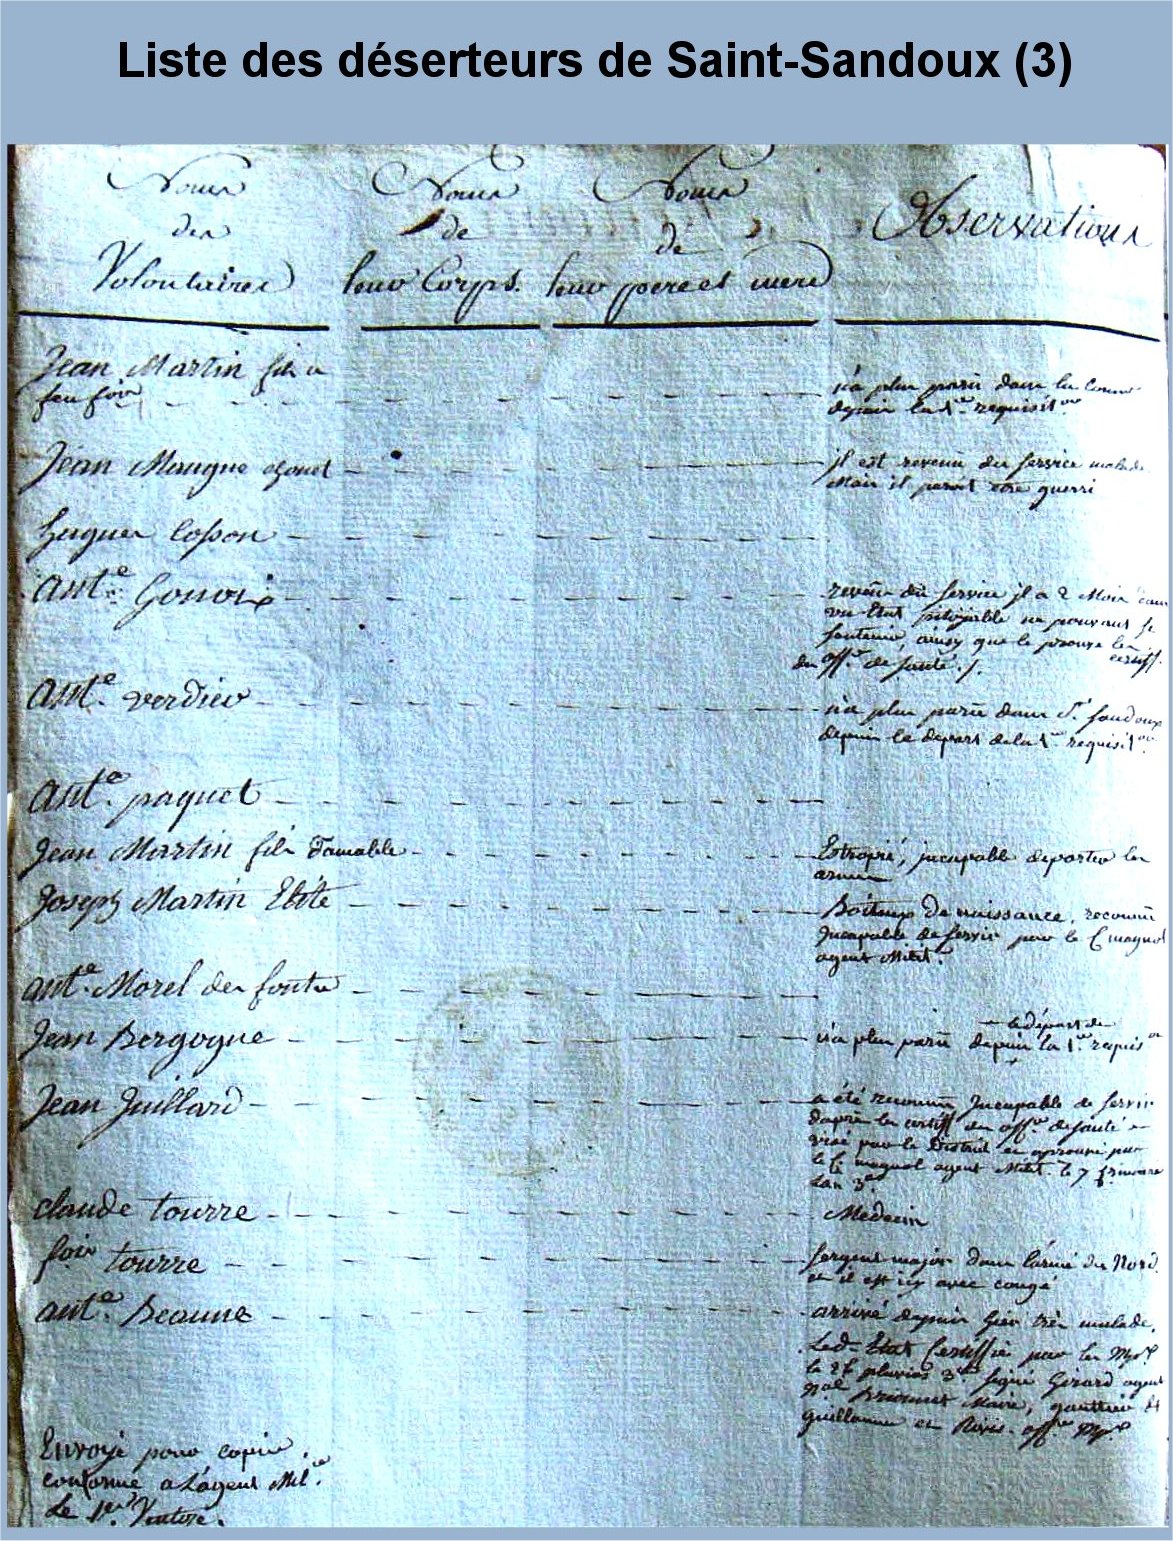 Liste des déserteurs de Saint-Sandoux (3)
Noms
des
Volontaires
Noms
de
leur Corps.
Noms
de
leur pere et mere
Observations
Jean Martin fils a
feu foix
n'a plus parû dans la Comne
depuis la 1re requisiton
Jean Maugue
jl est revenu du service malade
Mais il paroit etre guerri
hugues Cosson
ante Gonoix
revenu du service jl a 2 Mois dans
un Etat pitoyable ne pouvant se
soutenir, ainsy que le prouve les
certiff.
des offers de santé ./.
ante verdier
n'a plus parû dans St sandoux
depuis le depart de la 1re requisiton
ante paquet
Jean Martin fils d'amable
Estropié, jncapable de porter les
armes
Joseph Martin
Boiteux de naissance, reconnu
Jncapable de servir par le C. magnol
agent Milit.
ante Morel
Jean Bergogne
le départ de
n'a plus parû depuis la 1re requison
Jean Juillard
a été reconnu Jncapable de servir
d'après les certiff des offers de santé
visé par le District et approuvé par
le C. magnol agent Milit. le 7 frimaire
L'an 3e
claude tourre
Medecin
foix tourre
sergent major dans l'armé du Nord
et il est icy avec congé
ante Beaune
arrivé depuis hier très malade.
Led. Etat Certiffié par les
le pluvios 3e signé Girard agent
nal Maire, gauttier
guillaume et offers
Envoyé pour copie
conforme a L'agent Mil.re
Le